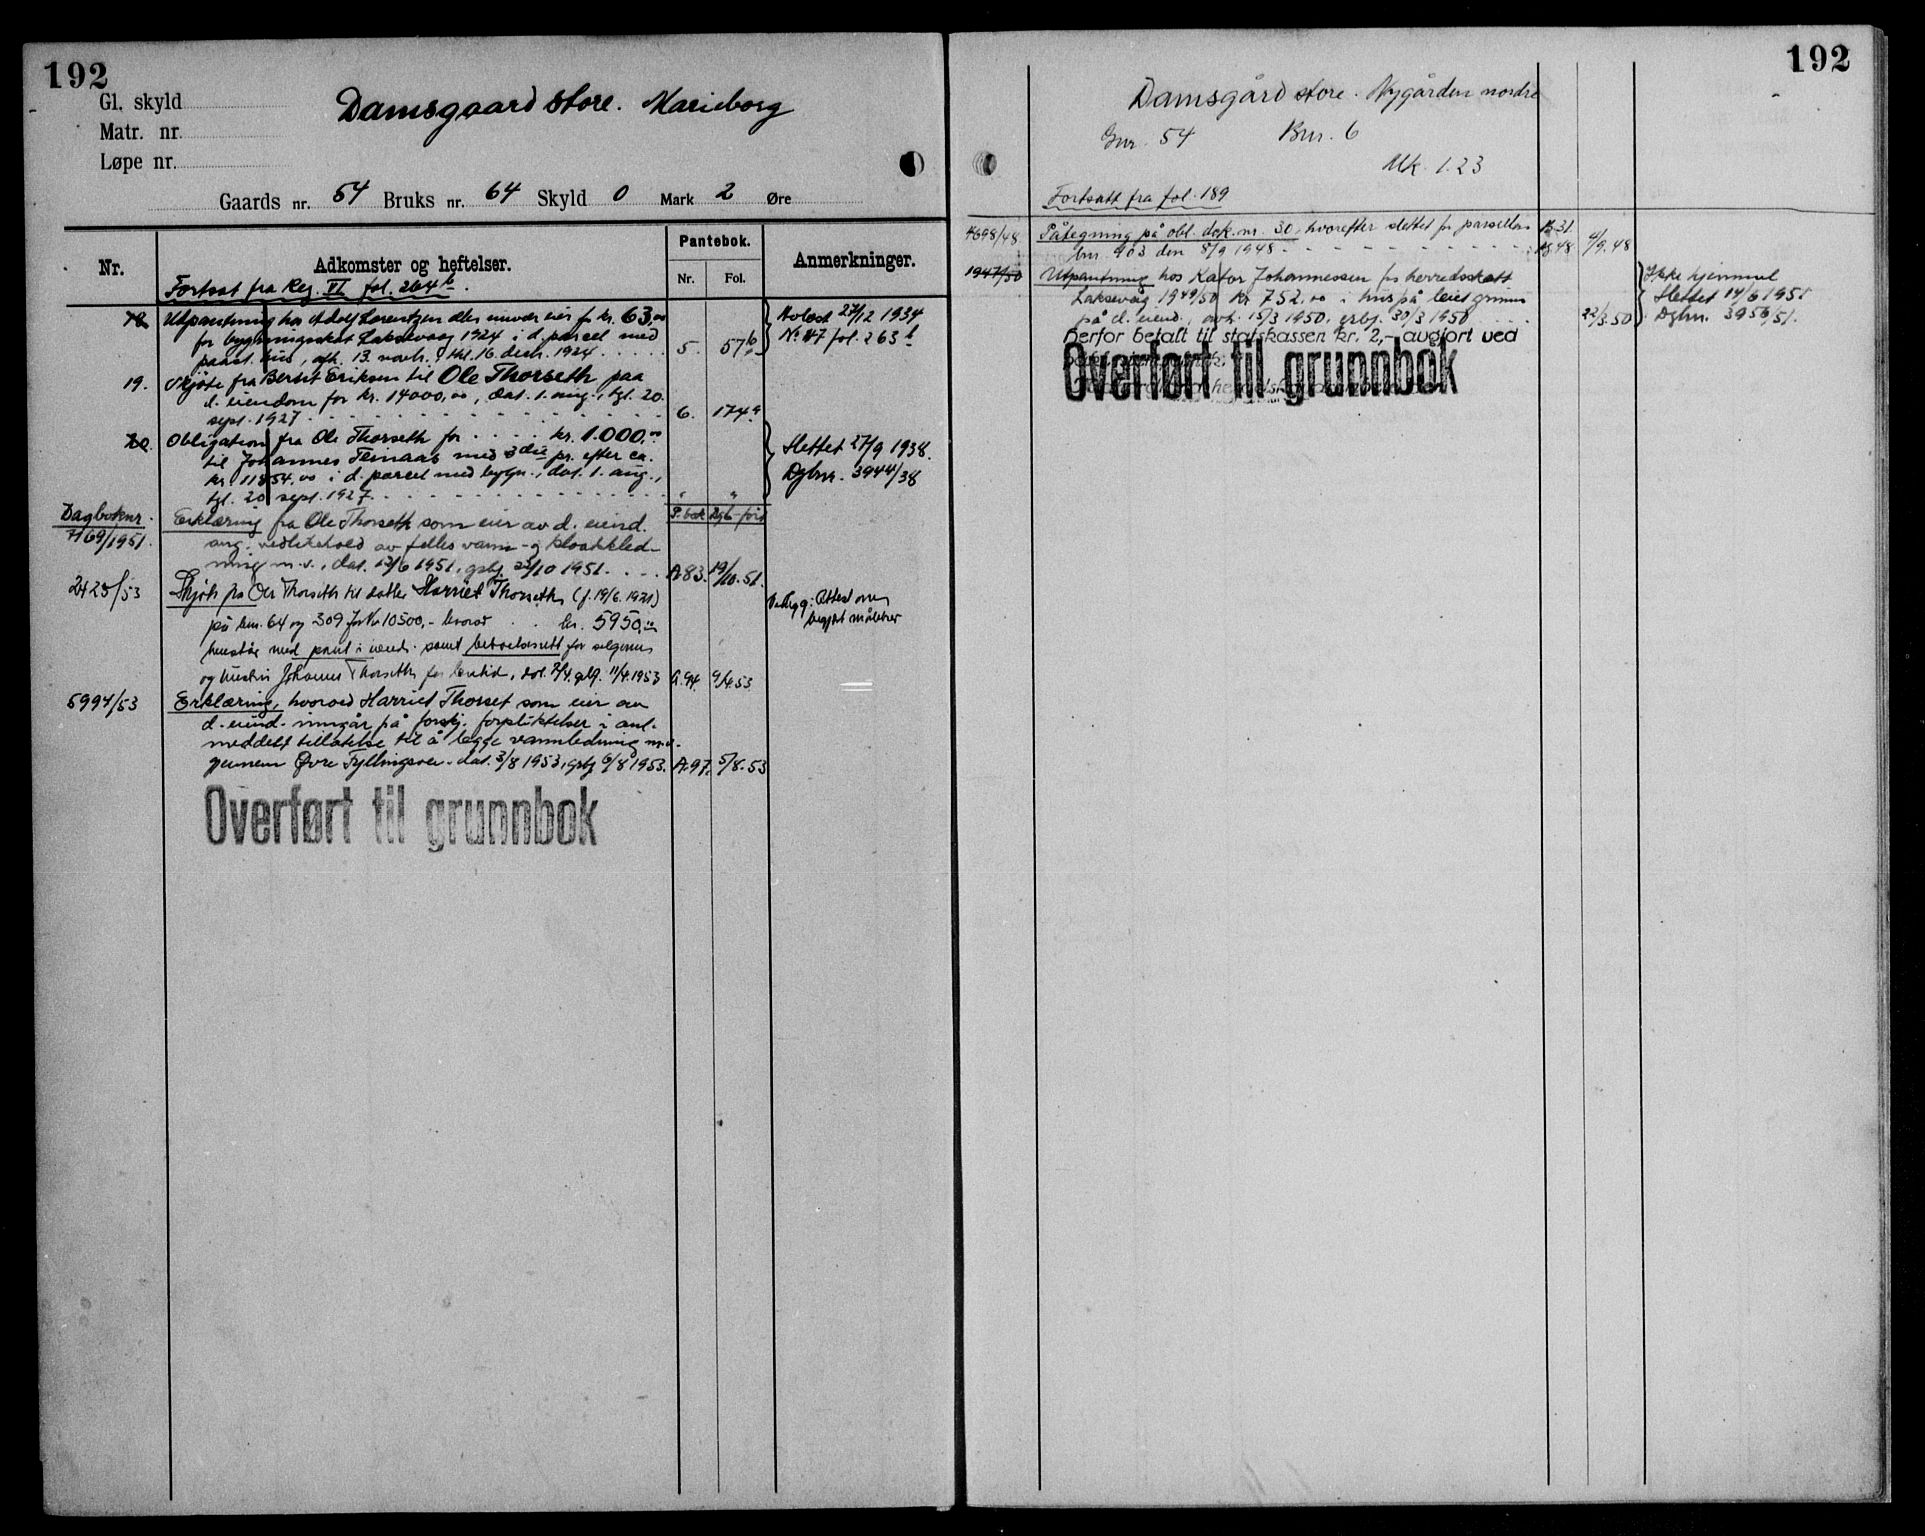 192
Gl. skyld
Matr. nr.
Løpe nr.
Damsgaard store. Marieborg
Gaards nr. 54 Bruks nr. 64 Skyld 0 Mark 2 Øre
Nr.
Adkomster og heftelser.
Pantebok.
Nr. Fol.
Anmerkninger.
Fortsat fra Reg. VI fol. 264 b.
Utpantning hos Adolf Lorentzen eller nuvær. eier f. kr. 63.00
for bygningsskat Laksevaag 1924 i d. parcel med
paast. hus, afh. 13. novbr., tkl. 16. decb. 1924.
5. 57 b
Avlest 27/12 1934
No. 47 fol. 263 b
19. Skjøte fra Berhit Eriksen til Ole Thorseth paa
d. eiendom for kr. 14000,00, dat. 1. aug., tgl. 20.
sept. 1927
6. 174 a
20. Obligation fra Ole Thorseth for kr. 1.000.00
til Johannes med 3die pr. efter ca.
kr. 11854,00 i d. parcel med bygn., dat. 1. aug.,
tgl. 20 sept. 1927.
" "
Slettet 27/9 1938.
Dgbnr. 3944/38
Dagboknr.
7169/1951.
P.bok Dgb-ført
Erklæring fra Ole Thorseth som eier av d. eiend.
ang. vedlikehold av felles vann- og kloakkled-
ning m.v., dat. 12/6 1951, gsbj. 23/10 1951.
A.83. 19/10.51.
2425/53 Skjøte fra Ole Thorseth til datter Harriet Thorseth (f. 19/6.1921)
på bnr. 64 og 309 for kr 10500,- hvorav kr. 5950,00
henstår med pant i eiend. samt borettsrett for selgeren
og hustru Johanne Thorseth for levetid, dat. 7/4, gsbj. 11/4.1953
A.94. 9/4.53
Vedlegg: Attest om
begjært målebrev
5994/53 Erklæring, hvorved Harriet Thorset som eier av
d. eiend. inngår på forskj. forpliktelser i anl.
meddelt tillatelse til å legge vannledning m.v.
gjennem Øvre Fyllingsvei. dat. 3/8 1953, gsbj 6/8 1953.
A.97. 5/8.53
Overført til grunnbok
192
Damsgård store. Nygården nordre
Gnr. 54 Bnr. 6
Mk. 1.23
Fortsatt fra fol. 189
4698/48 Påtegning på obl. dok. nr. 30, hvorefter slettet for parsellen
bnr. 903 den 8/9 1948
B.31
4/9.48
1947/50 Utpantning hos Kator Johannessen for herredsskatt
Laksevåg 1949/50 kr 752.00 i hus på leiet grunn
på d. eiend., avh. 15/3 1950, gsbj. 30/3 1950
22/3.50
Ikke hjemmel
Slettet 14/6 1951
Dgbnr. 3956/51.
herfor betalt til statskassen kr. 2,- avgjort ved
Overført til grunnbok